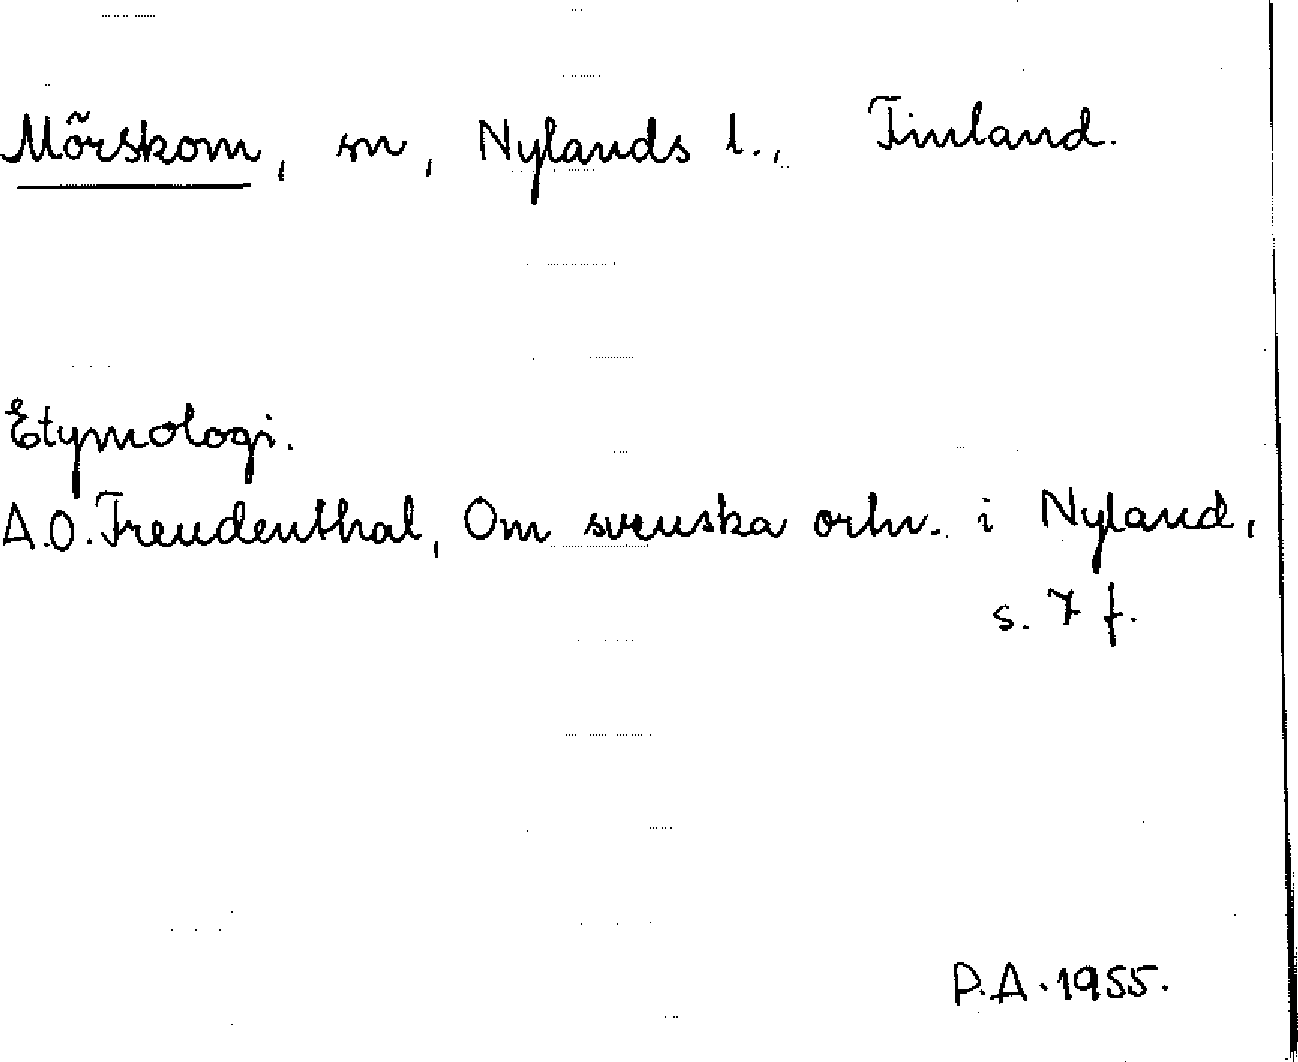 Mörskom, sn, Nylands l., Finland.
Etymologi.
A.O. Freudenthal, Om svenska ortn. i Nyland,
s. 7 f.
P.A. 1955.